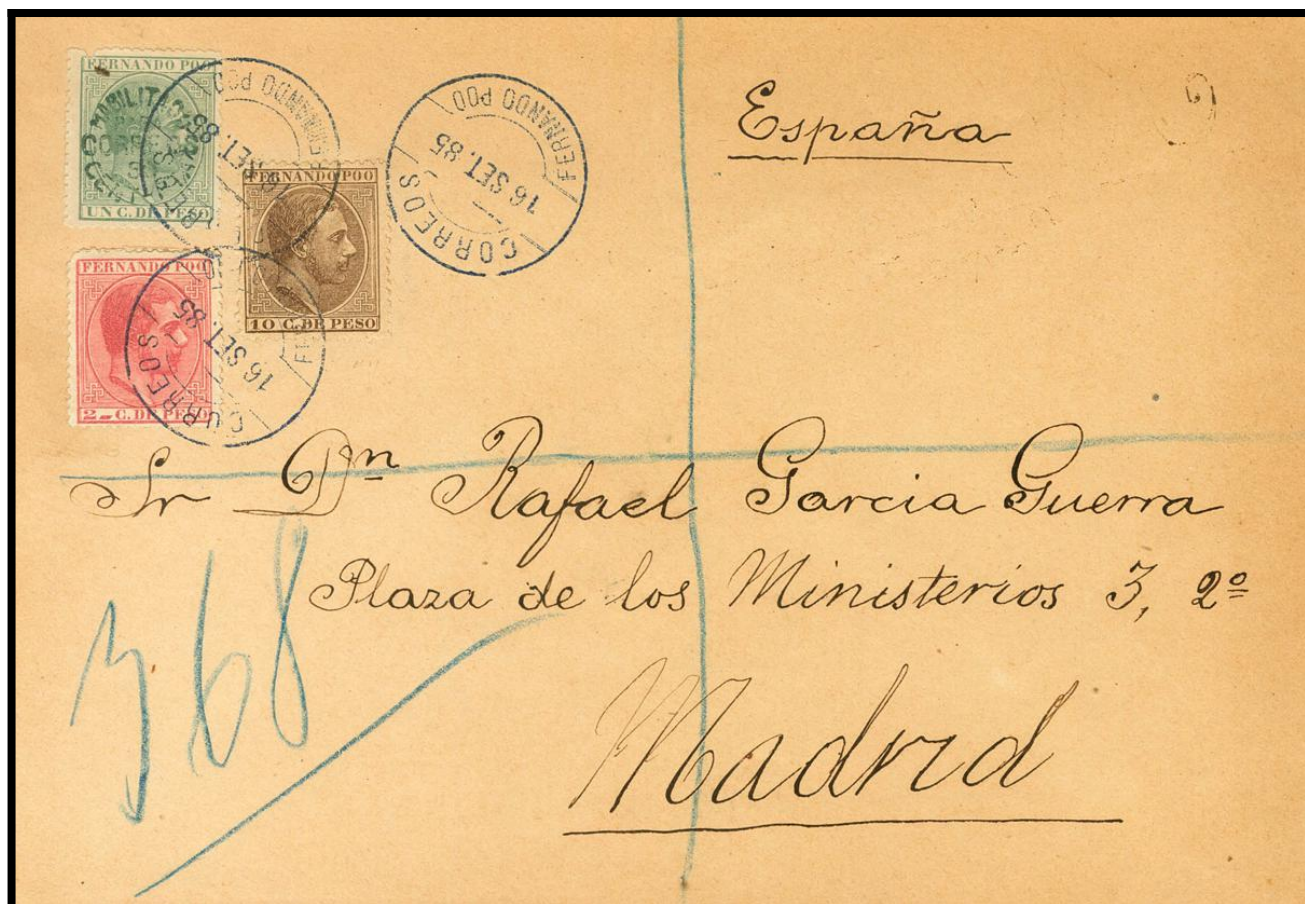 FERNANDO POO
CORREOS
UN C. DE PESO
FERNANDO POO
10 C. DE PESO
FERNANDO POO
2 C. DE PESO
FERNANDO POO
16 SET. 85
CORREOS
FERNANDO POO
16 SET. 85
CORREOS
16 SET. 85
España
Sr Dn Rafael Garcia Guerra
Plaza de los Ministerios 3, 2º
Madrid
368